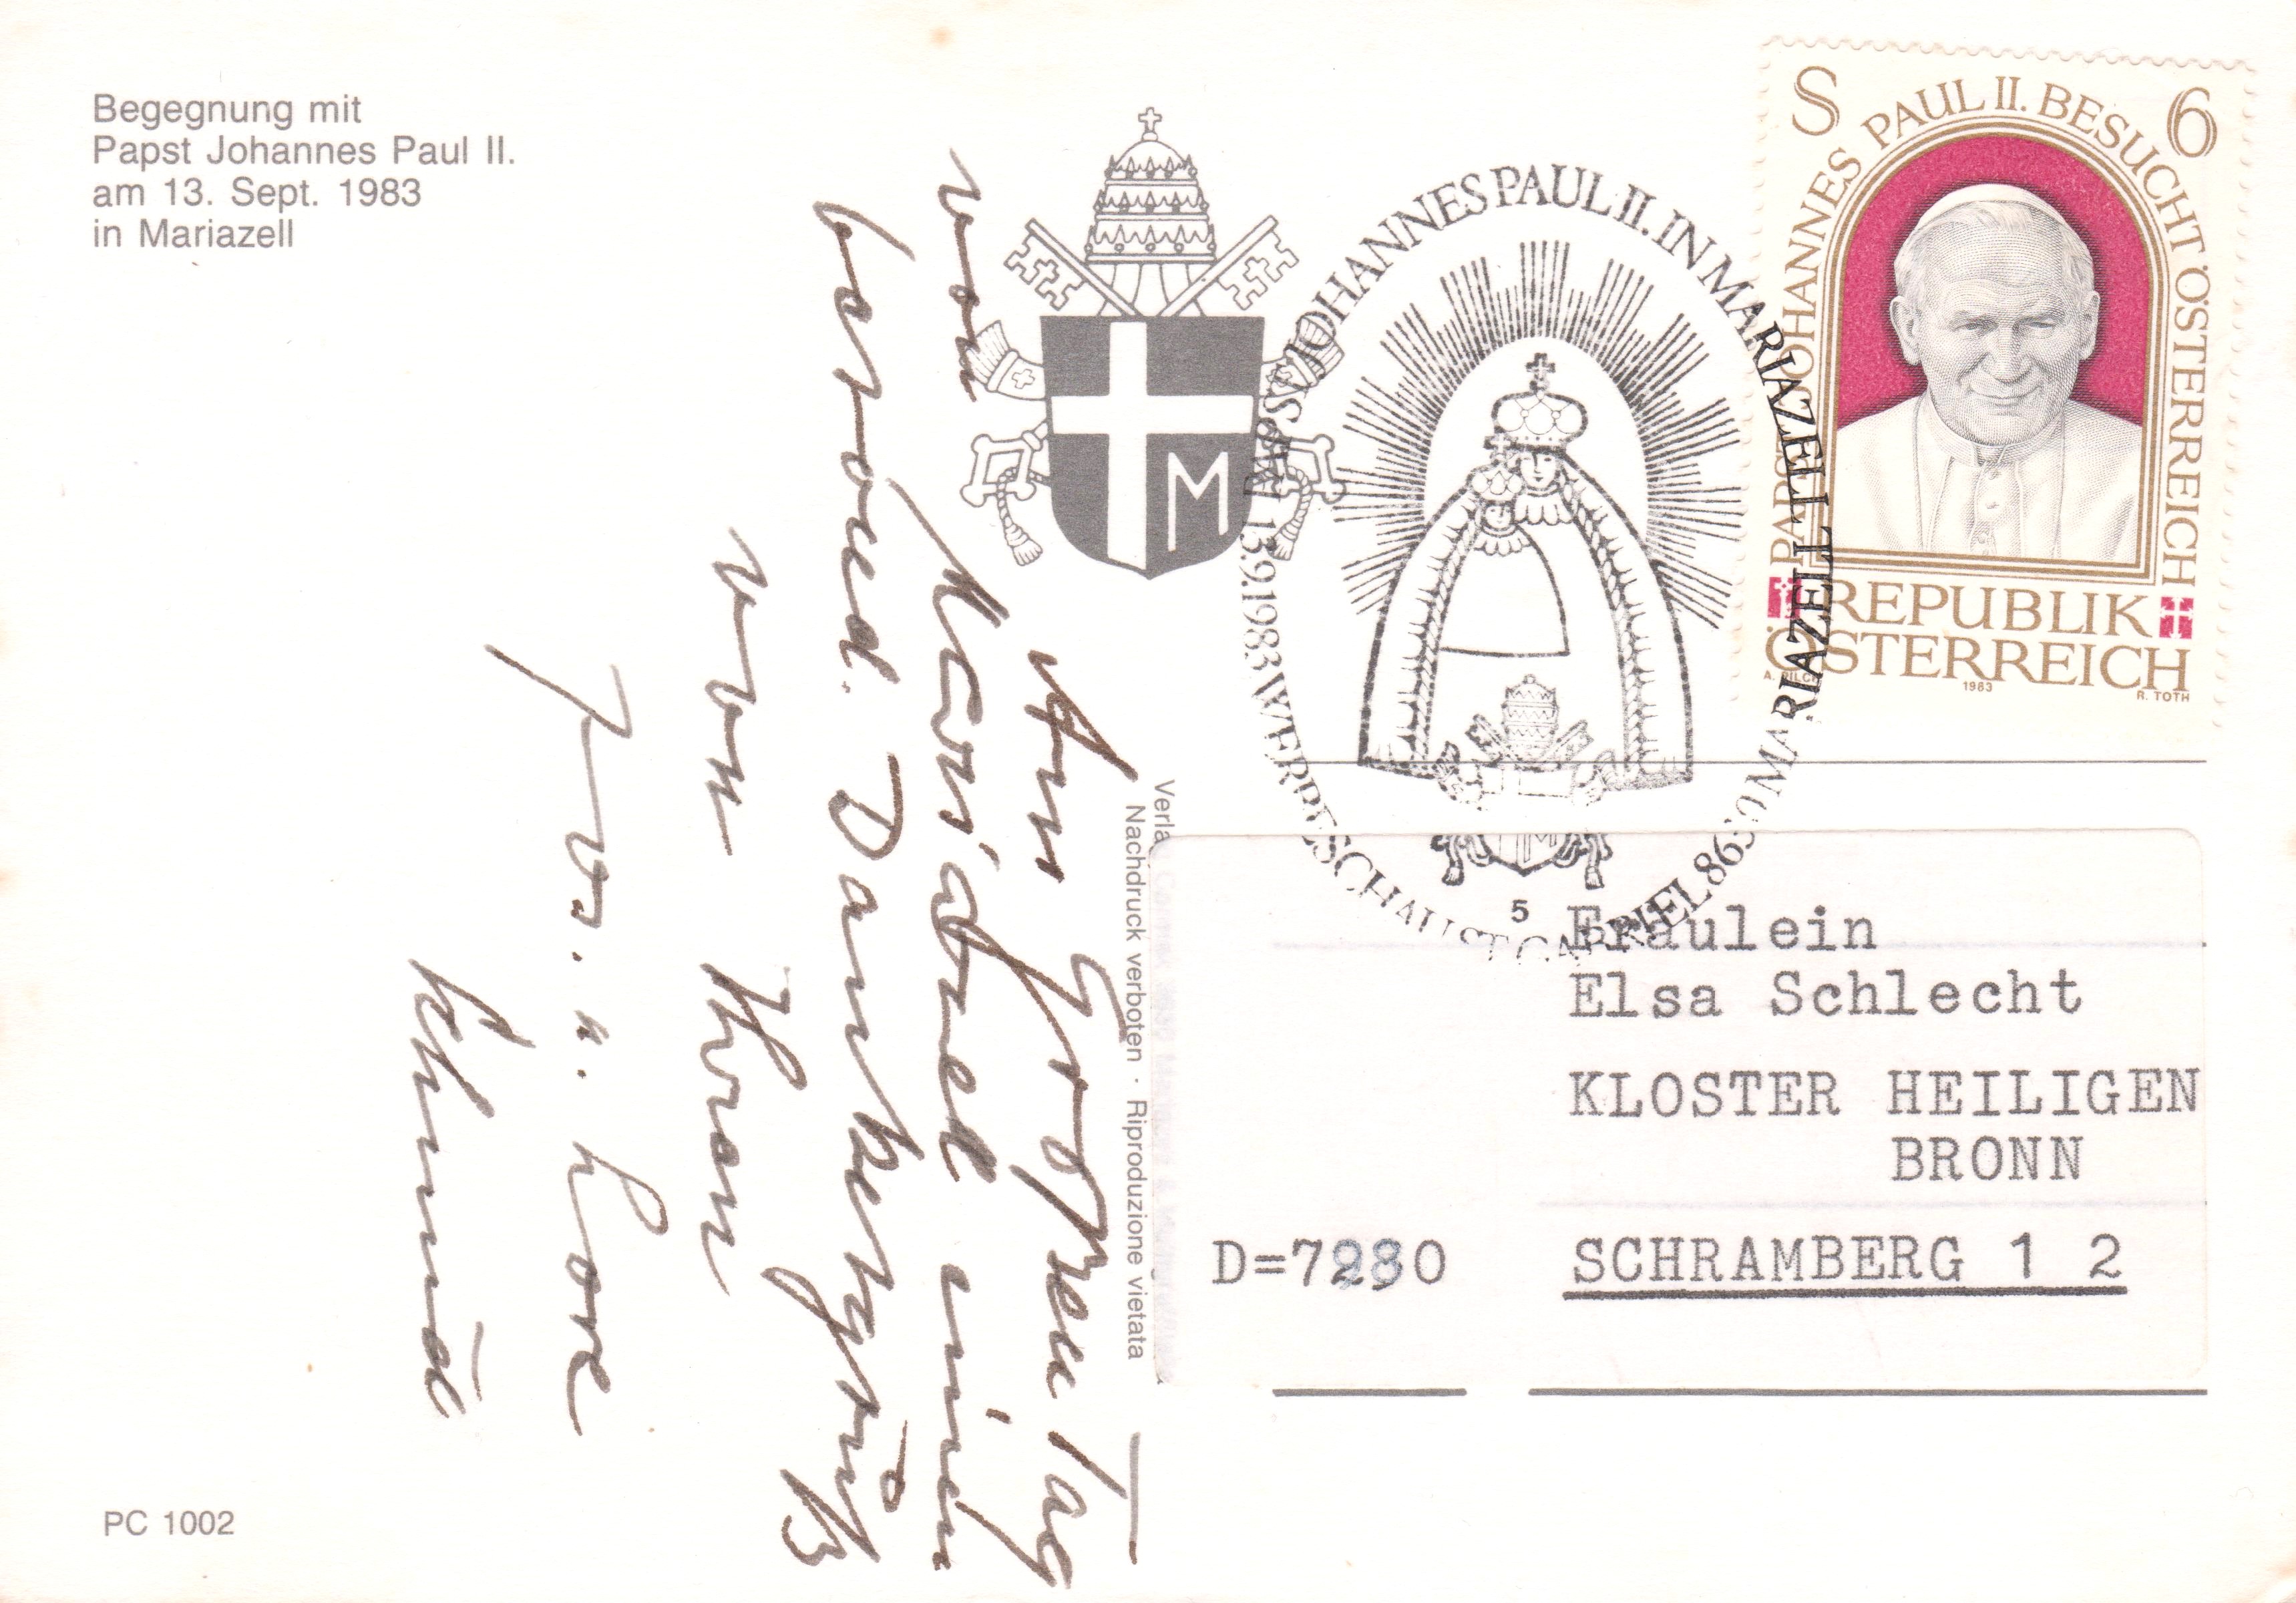 Begegnung mit
Papst Johannes Paul II.
am 13. Sept. 1983
in Mariazell
PC 1002
Vom Großen Tag
von Mariazell einen
besond. Dankesgruß
von Ihren
u. Lore
Schmid
Verla
Nachdruck verboten · Riproduzione vietata
PAPST JOHANNES PAUL II. IN MARIAZELL
13.9.1983 WERBESCHAU ST. GABRIEL 8630 MARIAZELL
5
S 6
PAPST JOHANNES PAUL II. BESUCHT ÖSTERREICH
REPUBLIK
ÖSTERREICH
A. PILCH 1983 R. TOTH
M
Fräulein
Elsa Schlecht
KLOSTER HEILIGEN
BRONN
D=7230 SCHRAMBERG 1 2